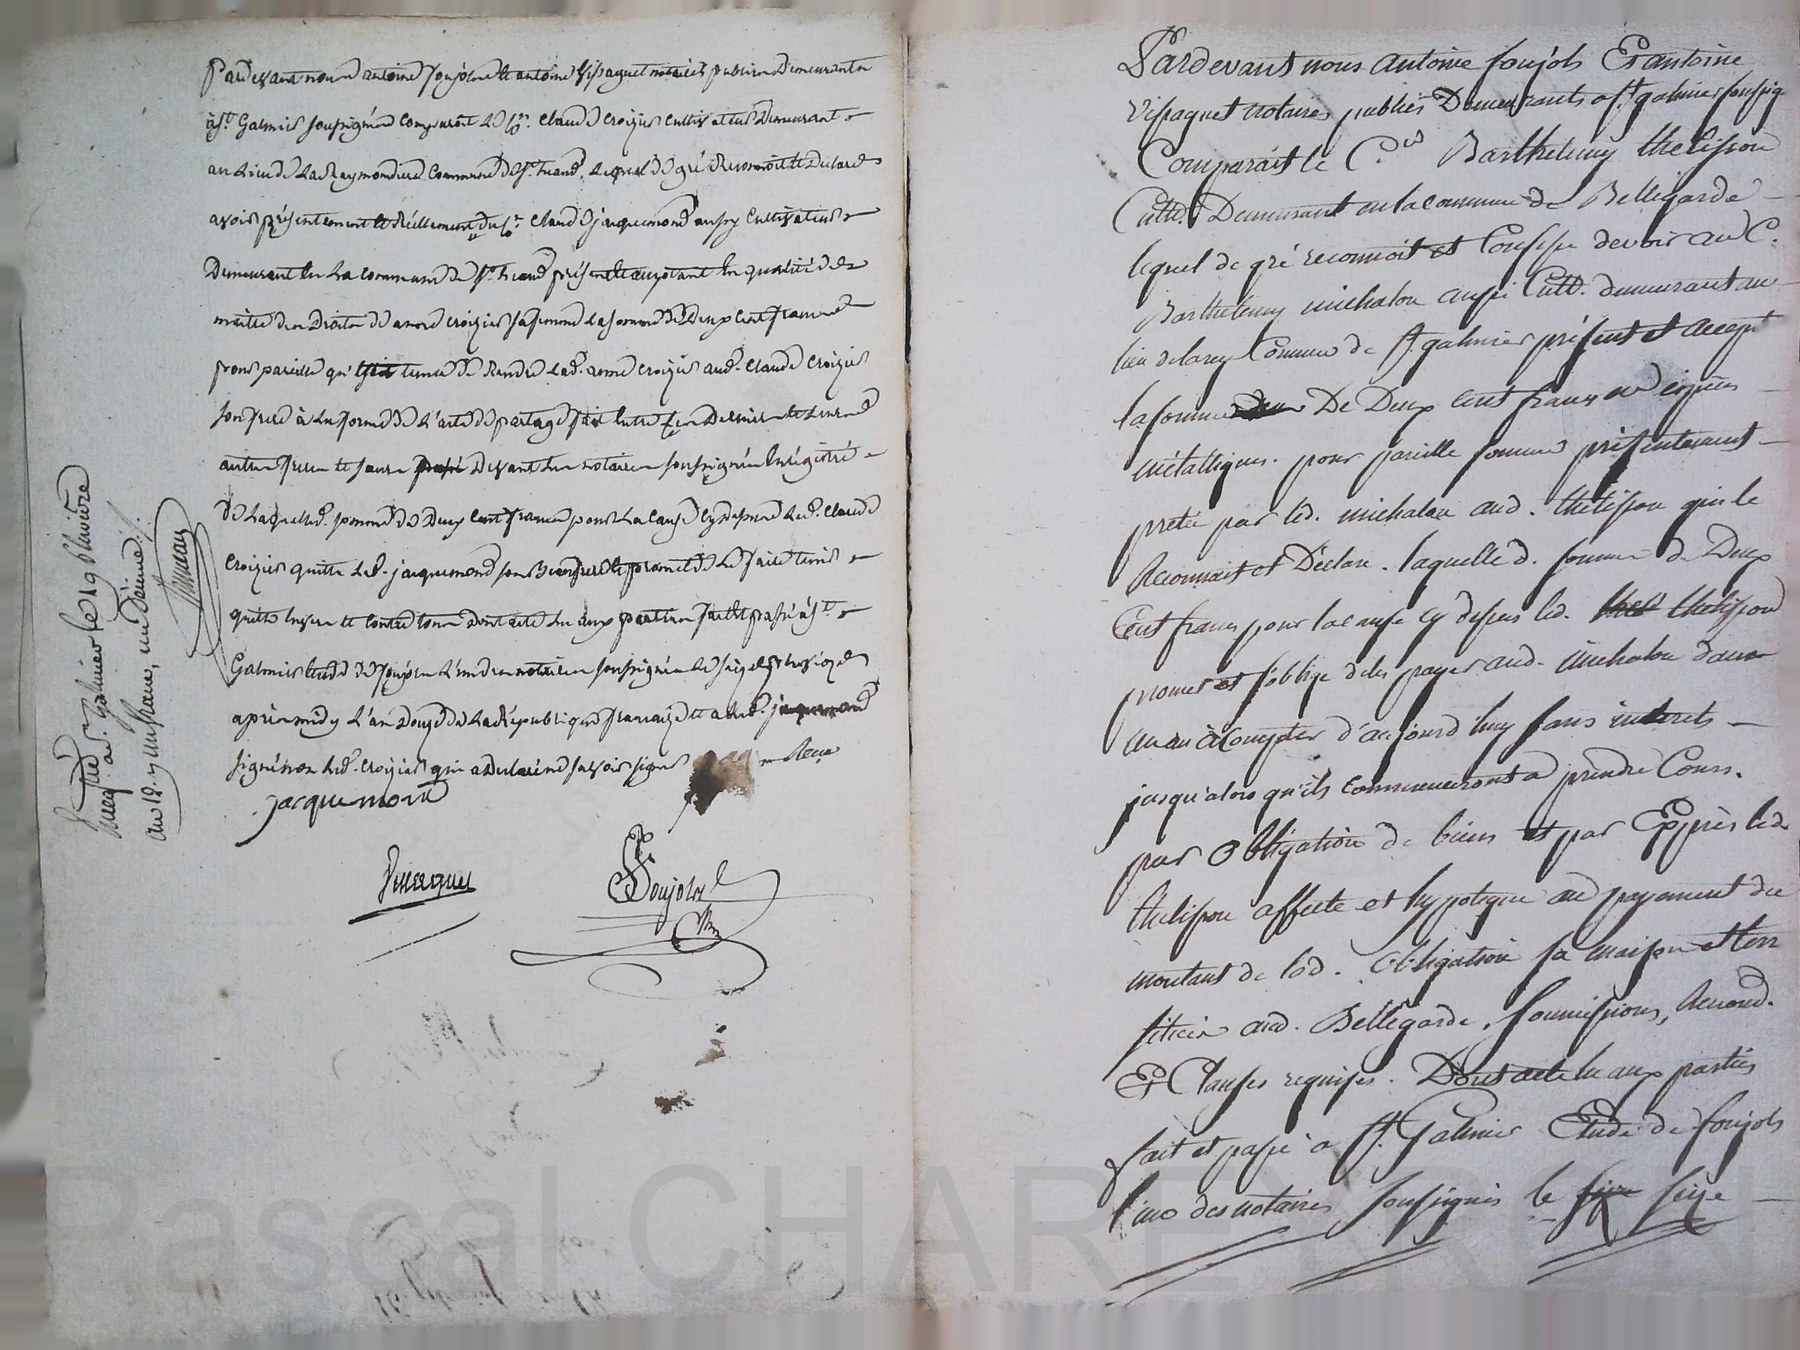 Pardevant nous antoine Soujols et antoine Vissaguet notaires publics Demeurants
à St. Galmier soussignés Comparoit le Cn. Claude Croizier Cultivateur Demeurant
au lieu de la Reymondiere Commune de St. heand, lequel de gré Reconnoit et declare
avoir présentement et Réellement du Cn. Claude jacquemond aussy Cultivateur
Demeurant en la commune de St. heand présent et acceptant en qualité de
maitre des Droits de anne croizier sa femme la somme de Deux Cent francs
pour pareille qu'il tenu de Rendre lad. anne croizier aud. Claude Croizier
son frere à la forme de l'acte de partage fait entre eux Dernier et leurs
autres freres et soeurs Devant les notaires soussignés Enrégistré
De laquelle d. somme de Deux Cent francs pour la cause cy dessus led. Claude
Croizier quitte led. jacquemond promet de le faire tenir
quitte envers et contre tous dont acte lu aux parties fait et passé à St.
Galmier Etude de Soujols l'un des notaires soussignés le seize
après midy l'an Douze de la République française et a led. jacquemond
signé non led. Croizier qui a declaré ne savoir signer
jacquemont
Vissaguet
Soujols
Enregistré à St. galmier le 19
an 12. un franc,
Pardevant nous antoine soujols Et antoine
Vissaguet notaires publics Demeurants a St. galmier soussig
Comparait le C.en Barthelemy thelisson
Cultr. Demeurant en la commune de Bellegarde
lequel de gré reconnoit et Confesse devoir au C.
Barthelemy michalon aussi Cultr. demeurant au
lieu de larey Commune de St. galmier présent et accept
la somme De Deux Cent francs en espèces
métalliques. pour pareille somme présentement
pretée par led. michalon aud. thelisson qui le
Reconnait et Déclare. laquelle d. somme de Deux
Cent francs pour la cause cy dessus led. thelisson
promet et s'oblige de les payer aud. michalon dans
un an à Compter d'aujourd'huy sans interets
jusqu'alors qu'ils commenceront a prendre Cours.
par Obligation de biens et par Exprès led
thelisson affecte et hypoteque au payement du
montant de lad. Obligation sa maison et ten
aud. Bellegarde, soumissions, Renond.
Et Clauses requises. Dont acte lu aux parties
fait et passé à St. Galmier Etude de soujols
l'un des notaires soussignés le seize
Pascal CHAREYRON